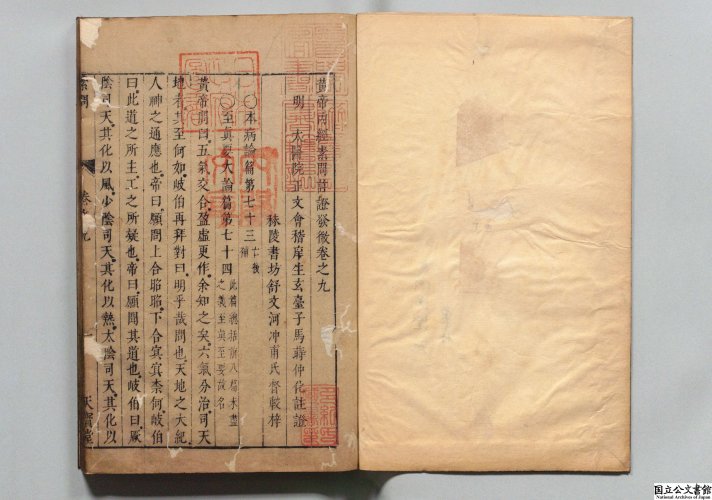 黄帝内經素問註證發微卷之九
明 太醫院正文會稽庠生玄臺子馬蒔仲化註證
秣陵書坊舒文河冲甫氏督較梓
○本病論篇第七十三 亡後補
○至真要大論篇第七十四 此篇總括前八篇未盡之義至真至要故名
黃帝問曰五氣交合盈虛更作余知之矣六氣分治司天
地者其至何如岐伯再拜對曰明乎哉問也天地之大紀
人神之通應也帝曰願聞上合昭昭下合冥冥柰何岐伯
曰此道之所主工之所疑也帝曰願聞其道也岐伯曰厥
陰司天其化以風少陰司天其化以熱太陰司天其化以
素問
卷之九
一
天寶堂
国立公文書館
National Archives of Japan